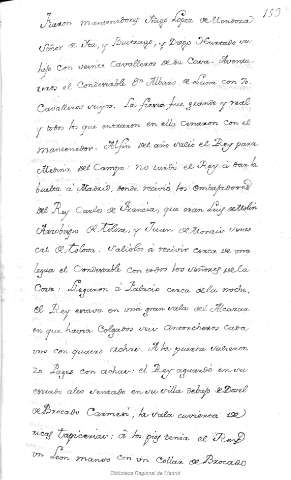 153
fueron mantenedores Yñigo Lopez de Mendoza
Señor de Ita, y Buitrago, y Diego Hurtado su
hijo con veinte Cavalleros de su Casa. Aventu-
reros el Condestable Dn Albaro de Luna con 60
Cavalleros suyos. La fiesta fue grande y real
y todos los que entraron en ella cenaron con el
mantenedor. Al fin del año salió el Rey para
Medina del Campo: no tardó el Rey á dar la
buelta á Madrid, donde recivió los Embajadores
del Rey Carlos de Francia, que eran Luis de Molin
Arzobispo de Tolosa, y Juan de Monais Senes
cal de Tolosa. Salióles á recivir cerca de una
legua el Condestable con todos los Señores de la
Corte. Llegaron á Palacio cerca de la noche,
el Rey estava en una gran sala del Alcazar
en que havia Colgados seis Antorcheros Cada
uno con quatro achas. A la puerta salieron
20 Pages con achas: el Rey aguardó en su
estrado alto sentado en su silla debajo de Dosel
de Brocado Carmesi, la sala cubierta de
ricos tapicerias: á los pies tenia el Rey
un Leon manso con un Collar de Brocado
Biblioteca Regional de Madrid